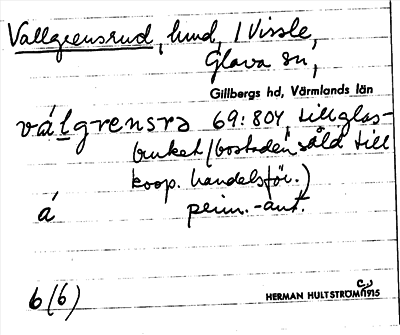 Vallgrensrud, lund, I Vissle,
Glava sn,
Gillbergs hd, Värmlands län
válgrensrə 69:804, till glas-
bruket (bostaden såld till
koop. handelsför.)
á perm.-ant.
6 (6) HERMAN HULTSTRÖM 1915